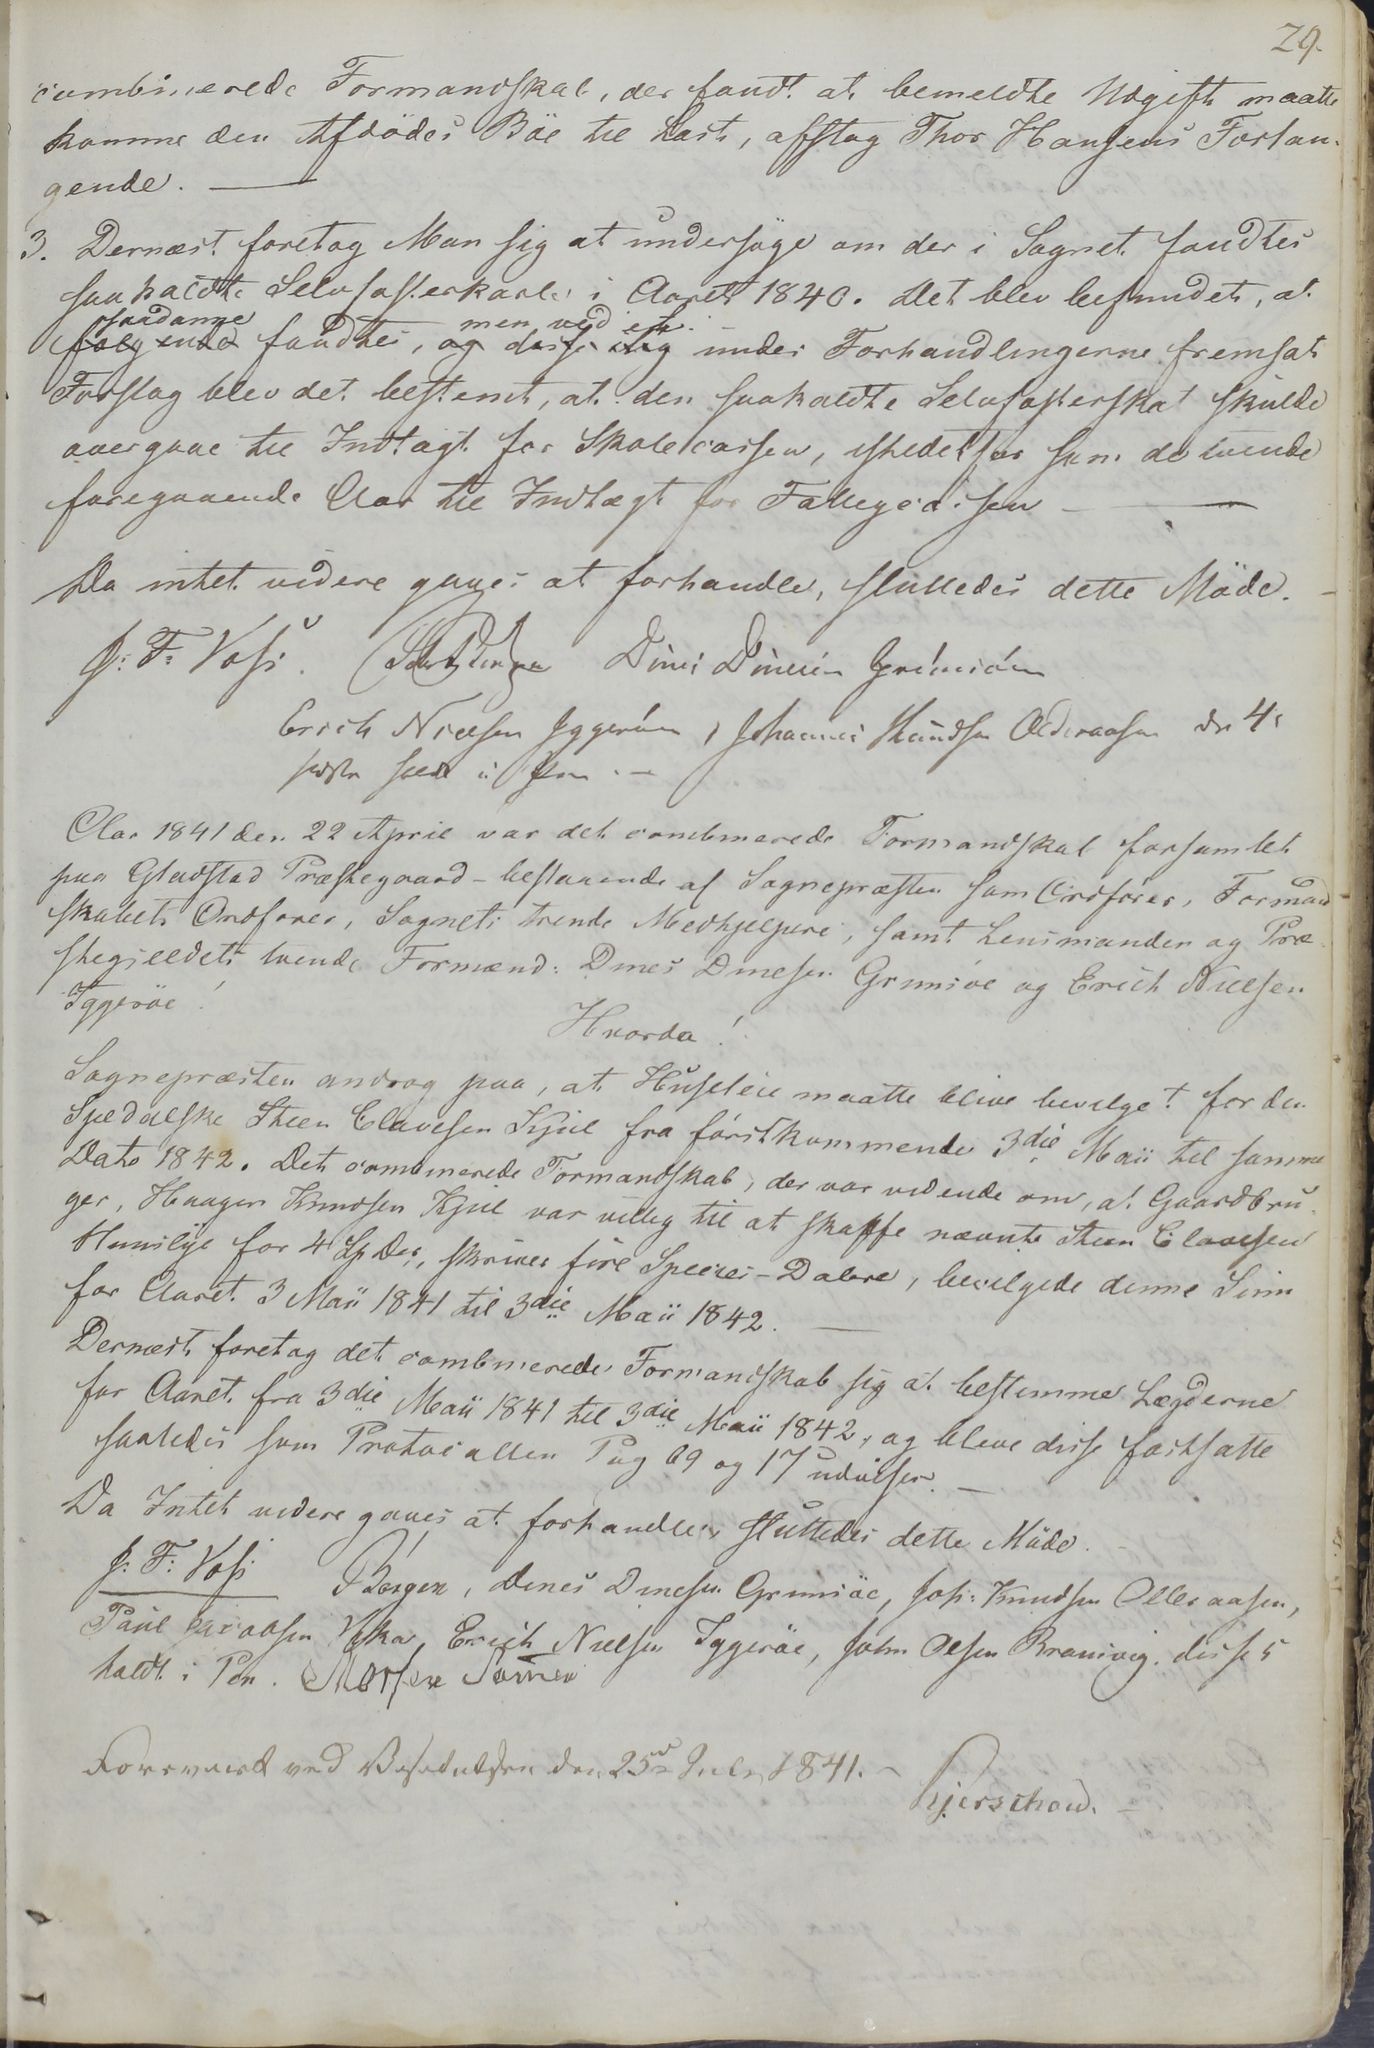 29.
combinerede Formandskab, der fandt at bemeldte Udgift maatte
komme den Afdödes Böe til Last, afslog Thor Hansens Forlan-
gende. —
3. Dernæst foretog Man sig at undersöge om der i Sognet fandtes
saakaldte Selvfosterkarle i Aaret 1840. Det blev befundet, at
saadanne men ved et
fölgende fandtes, og disse sig under Forhandlingerne fremsat
Forslag blev det bestemt, at den saakaldte Selvfosterskat skulde
overgaae til Indtægt for Skolecassen, istedetfor som de tvende
foregaaende Aar til Indtægt for Fattigcassen —
Da intet videre gaves at forhandle, sluttedes dette Möde. —
J: F: Voss. Dines Dinesen Grimsöe
Erich Nielsen Yggeröe, Johannes Knudsen Olderaasen de 4
sidste holdt i Pen. —
Aar 1841 den 22 April var det combinerede Formandskab forsamlet
paa Gladstad Præstegaard – bestaaende af Sognepræsten som Ordförer, Formand
skabets Ordförer, Sognets trende Medhjelpere, samt Lensmanden og Præ-
stegjeldets tvende Formænd: Dines Dinesen Grimsöe og Erich Nielsen
Yggeröe!
Hvorda!
Sognepræsten androg paa, at Huusleie maatte blive bevilget for den
Spedalske Steen Clausen Kjul fra förstkommende 3die Maii til samme
Dato 1842. Det combinerede Formandskab, der var vidende om, at Gaardbru-
ger, Haagen Knudsen Kjul var villig til at skaffe nævnte Steen Clausen
Huuslye for 4 Sp Dlr, skriver fire Species-Dalere, bevilgede denne Sum
for Aaret 3 Maii 1841 til 3die Maii 1842. —
Dernæst foretog det combinerede Formandskab sig at bestemme Lægderne
for Aaret fra 3die Maii 1841 til 3die Maii 1842, og bleve disse fastsatte
saaledes som Protocollen Pag 69 og 17 udviser. —
Da Intet videre gaves at forhandle, sluttedes dette Möde. —
J: F: Voss Borgen, Dines Dinesen Grimsöe, Joh: Knudsen Olleraasen,
Paul Jacobsen Erich Nielsen Yggeröe, John Olsen Bramsvig, disse 5
holdt i Pen.
Foreviist ved Besigtelsen den 25de July 1841. —
Kjerschow. —